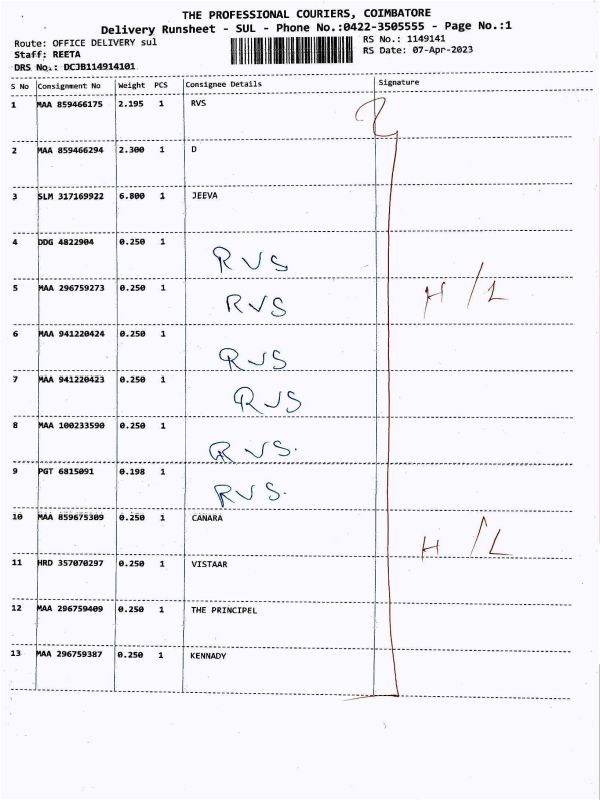 THE PROFESSIONAL COURIERS, COIMBATORE
Delivery Runsheet - SUL - Phone No.:0422-3505555 - Page No.:1
Route: OFFICE DELIVERY sul
RS No.: 1149141
Staff: REETA
RS Date: 07-Apr-2023
DRS No.: DCJB114914101
S No Consignment No Weight PCS Consignee Details Signature
1 MAA 859466175 2.195 1 RVS
2 MAA 859466294 2.300 1 D
3 SLM 317169922 6.800 1 JEEVA
4 DDG 4822904 0.250 1 RVS
5 MAA 296759273 0.250 1 RVS H/L
6 MAA 941220424 0.250 1 RVS
7 MAA 941220423 0.250 1 RVS
8 MAA 100233590 0.250 1 RVS.
9 PGT 6815091 0.198 1 RVS.
10 MAA 859675309 0.250 1 CANARA H/L
11 HRD 357070297 0.250 1 VISTAAR
12 MAA 296759409 0.250 1 THE PRINCIPEL
13 MAA 296759387 0.250 1 KENNADY